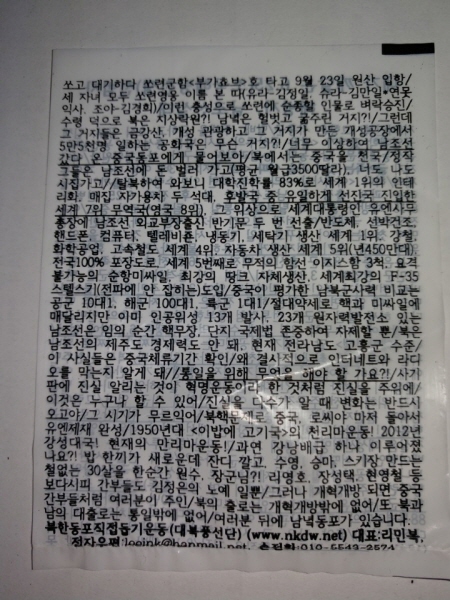 쏘고 대기하다 쏘련군함<부가쵸브>호 타고 9월 23일 원산 입항/
세 자녀 모두 쏘련영웅 이름 본 따(유라-김정일, 슈라-김만일*연못
익사, 조아-김경희)/이런 충성으로 쏘련에 순종할 인물로 벼락승진/
수령 덕으로 북은 지상락원?! 남녘은 헐벗고 굶주린 거지?!/그런데
그 거지들은 금강산, 개성 관광하고 그 거지가 만든 개성공장에서
5만5천명 일하는 공화국은 무슨 거지?!/너무 이상하여 남조선
갔다 온 중국동포에게 물어보아/북에서는 중국을 천국/정작
그들은 남조선에 돈 벌러 가고(평균 월급3500달라), 너도 나도
시집가고//탈북하여 와보니 대학진학률 83%로 세계 1위의 인테
리화, 매집 자가용차 두 석대, 후발국 중 유일하게 선진국 진입한
세계 7위 무역국(영국 8위), 그 위상으로 세계대통령인 유엔사무
총장에 남조선 외교부장출신 반기문 두 번 선출/반도체, 선박건조,
핸드폰, 컴퓨터, 텔레비죤, 냉동기, 세탁기 생산 세계 1위, 강철,
화학공업, 고속철도 세계 4위, 자동차 생산 세계 5위(년450만대),
전국100% 포장도로, 세계 5번째로 무적의 함선 이지스함 3척, 요격
불가능의 순항미싸일, 최강의 땅크 자체생산, 세계최강의 F-35
스텔스기(전파에 안 잡히는)도입/중국이 평가한 남북군사력 비교는
공군 10대1, 해군 100대1, 륙군 1대1/절대약세로 핵과 미싸일에
매달리지만 이미 인공위성 13개 발사, 23개 원자력발전소 있는
남조선은 임의 순간 핵무장, 단지 국제법 존중하여 자제할 뿐/북은
남조선의 제주도 경제력도 안 돼, 현재 전라남도 고흥군 수준/
이 사실들은 중국체류기간 확인/왜 결사적으로 인터네트와 라디
오를 막는지 알게 돼//통일을 위해 무엇을 해야 할 가요?!/사기
판에 진실 알리는 것이 혁명운동이라 한 것처럼 진실을 주위에/
이것은 누구나 할 수 있어/진실을 다수가 알 때 변화는 반드시
오고야/그 시기가 무르익어/북핵문제로 중국, 로씨야 마저 돌아서
유엔제재 완성/1950년대 <이밥에 고기국>의 천리마운동! 2012년
강성대국! 현재의 만리마운동!/과연 강냉밥 하나 이루어졌
나요?! 밥 한끼가 새로운데 잔디 깔고, 수영, 승마, 스키장 만드는
철없는 30살을 한순간 원수, 장군님?! 리영호, 장성택, 현영철 등
보다시피 간부들도 김정은의 노예 일뿐/그러나 개혁개방 되면 중국
간부들처럼 여러분이 주인/북의 출로는 개혁개방밖에 없어/또 북과
남의 대출로는 통일밖에 없어/여러분 뒤에 남녘동포가 있습니다.
북한동포직접돕기운동(대북풍선단) (www.nkdw.net) 대표:리민복,
전자우편:leeink@hanmail.net, 손전화:010-5543-2574